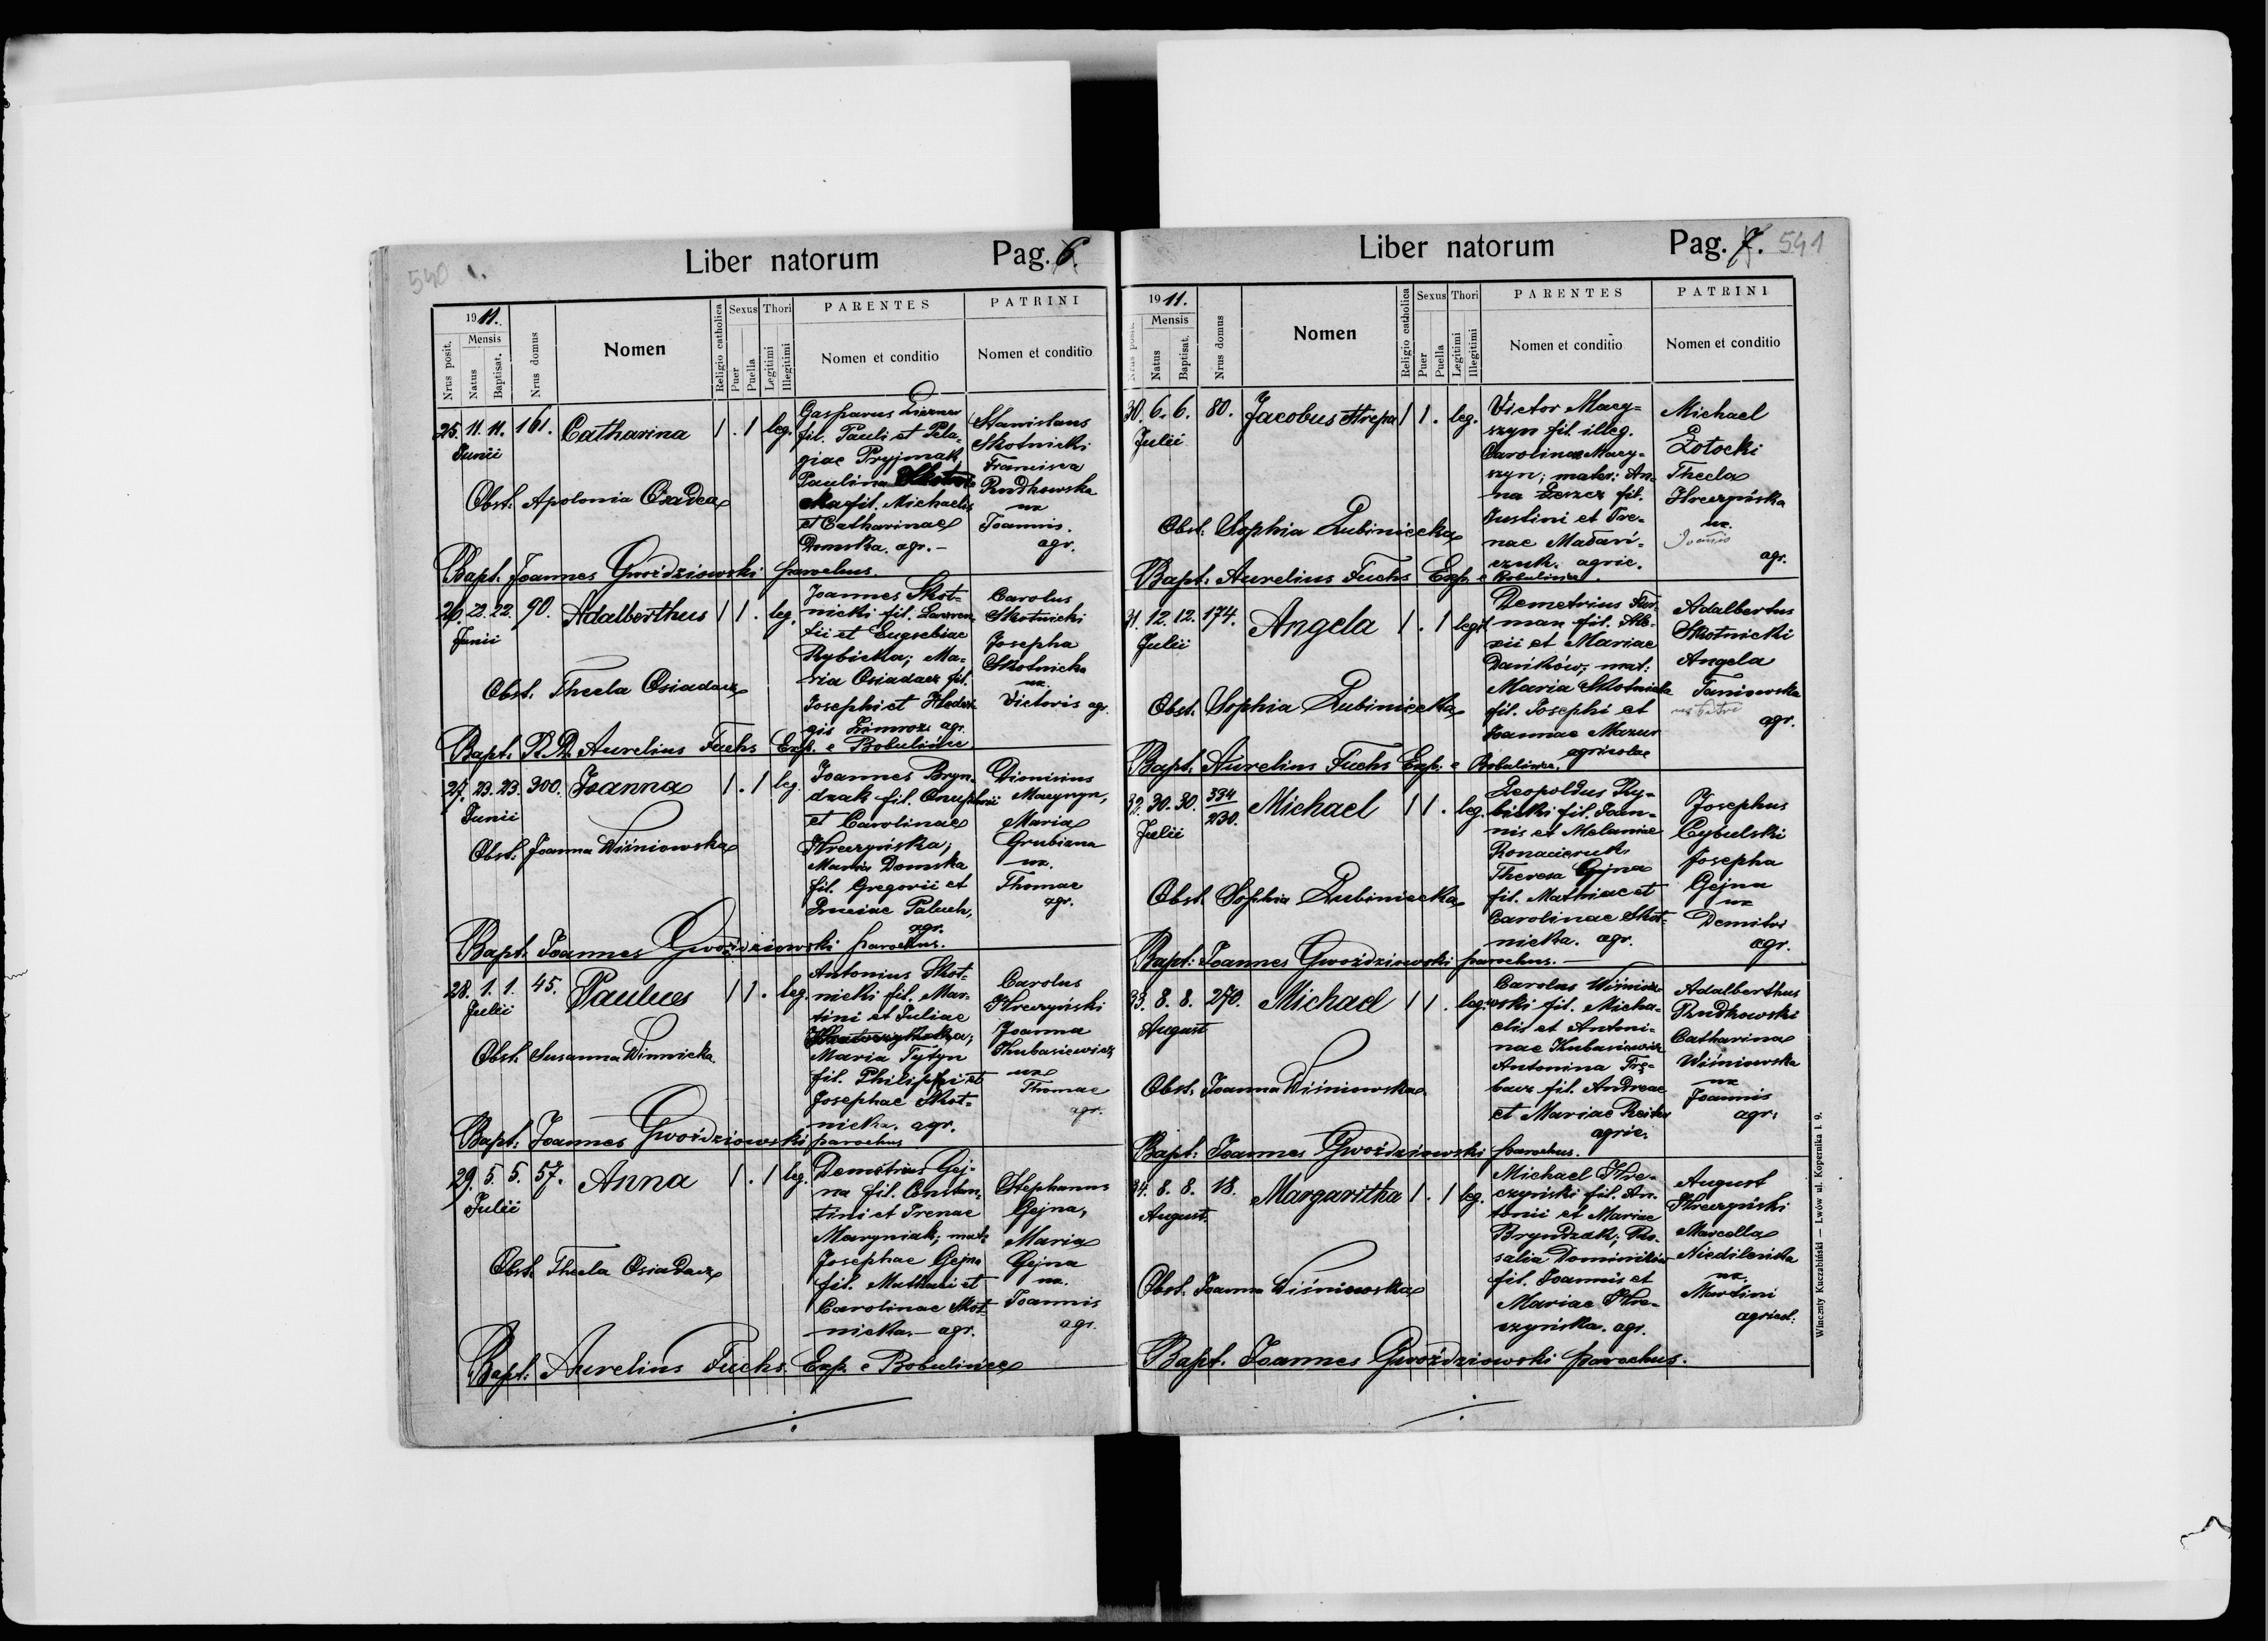 540
Liber natorum Pag. 6
1911.
Mensis
Nrus posit.
Natus
Baptisat.
Nrus domus
Nomen
Religio catholica
Sexus
Puer
Puella
Thori
Legitimi
Illegitimi
PARENTES
Nomen et conditio
PATRINI
Nomen et conditio
25. 11. 11. 161. Catharina 1 . 1 leg.
Junii
Obst. Apolonia
Gasparus
fil. Pauli et Pela-
giae Pryjmak,
Paulina
fil. Michaelis
et Catharinae
Domska. agr. —
Stanislaus
Skotnicki
Francisca
Rudkowska
ux
Joannis.
agr.
Bapt. Joannes Gwoździowski parochus.
26. 22. 22. 90. Adalberthus 1 1 . leg.
Junii
Obst. Thecla Osiadacz
Joannes Skot-
nicki fil. Lauren-
tii et Eugsebiae
Rybicka; Ma-
ria Osiadacz fil.
Josephi et Hedwi-
gis agr.
Carolus
Skotnicki
Josepha
Skotnicka
ux.
Victoris agr.
Bapt. R. D. Aurelius Fuchs Exp. e Bobulince
27. 23. 23. 300. Joanna 1 . 1 leg.
Junii
Obst. Joanna Wiśniowska
Joannes Bryn-
dzak fil. Onuphrii
et Carolinae
Hreczyńska;
Maria Domska
fil. Gregorii et
Luciae Paluch,
agr.
Dionisius
Maria
Grubizna
ux.
Thomae
agr.
Bapt. Joannes Gwoździowski parochus.
28. 1. 1. 45. Paulus 1 1 . leg.
Julii
Obst. Susanna Winnicka.
Antonius Skot-
nicki fil. Mar-
tini et Juliae
Maria Tytyn
fil. Philippi et
Josephae Skot-
nicka. agr.
Carolus
Hreczyński
Joanna
Kubasiewicz
ux
Thomae
agr.
Bapt. Joannes Gwoździowski parochus
29. 5. 5. 57. Anna 1 . 1 leg.
Julii
Obst. Thecla Osiadacz
Demetrius Gej-
na fil. Constan-
tini et Irenae
Maryniak; mat:
Josephae Gejna
fil. Mathaei et
Carolinae Skot-
nicka. — agr.
Stephanus
Gejna,
Maria
Gejna
ux.
Joannis
agr.
Bapt: Aurelius Fuchs. Exp. e Bobulince
Liber natorum Pag. 7. 541
1911.
Mensis
Nrus posit.
Natus
Baptisat.
Nrus domus
Nomen
Religio catholica
Sexus
Puer
Puella
Thori
Legitimi
Illegitimi
PARENTES
Nomen et conditio
PATRINI
Nomen et conditio
30. 6. 6. 80. Jacobus Strepa 1 1 . leg.
Julii
Obst. Sophia Lubiniecka
Victor Macy-
szyn fil. illeg.
Carolinae Macy-
szyn; mater: An-
na Leszcz fil.
Justini et Ire-
nae Madari-
czuk. agric.
Michael
Zotocki
Thecla
Hreczyńska
ux.
Joannis
agr.
Bapt: Aurelius Fuchs Exp. e Bobulince.
31. 12. 12. 174. Angela 1 . 1 legit.
Julii
Obst. Sophia Lubiniecka
Demetrius Fur-
man fil. Ale-
xii et Mariae
Dańków; mat:
Maria Skotnicka
fil. Josephi et
Joannae Mazur
agricolae
Adalbertus
Skotnicki
Angela
Janiowska
ux Petri
agr.
Bapt: Aurelius Fuchs Exp: e Bobulince.
32. 30. 30. 334/230. Michael 1 1 . leg.
Julii
Obst. Sophia Lubiniecka
Leopoldus Ry-
bicki fil. Joan-
nis et Melaniae
Theresa Gejna
fil. Mathiae et
Carolinae Skot-
nicka. agr.
Josephus
Cybulski
Josepha
Gejna
ux
Demitri
agr.
Bapt: Joannes Gwoździowski parochus. —
33. 8. 8. 270. Michael 1 1 . leg.
August
Obst. Joanna Wiśniowska
Carolus Wiśnio-
wski fil. Micha-
elis et Antoni-
nae Kubasiewicz
Antonina Trę-
bacz fil. Andreae
et Mariae
agric.
Adalberthus
Rudkowski
Catharina
Wiśniowska
ux
Joannis
agr.
Bapt: Joannes Gwoździowski parochus.
34. 8. 8. 18. Margaritha 1 . 1 leg.
August.
Obst. Joanna Wiśniowska
Michael Hre-
czyński fil. An-
tonii et Mariae
Bryndzak; Ro-
salia Dominików
fil. Joannis et
Mariae Hre-
czyńska. agr.
August
Hreczyński
Marcella
Niedilenska
ux.
Martini
agricol.
Bapt. Joannes Gwoździowski parochus.
Winczenty Kuczabiński — Lwów ul. Kopernika l. 9.